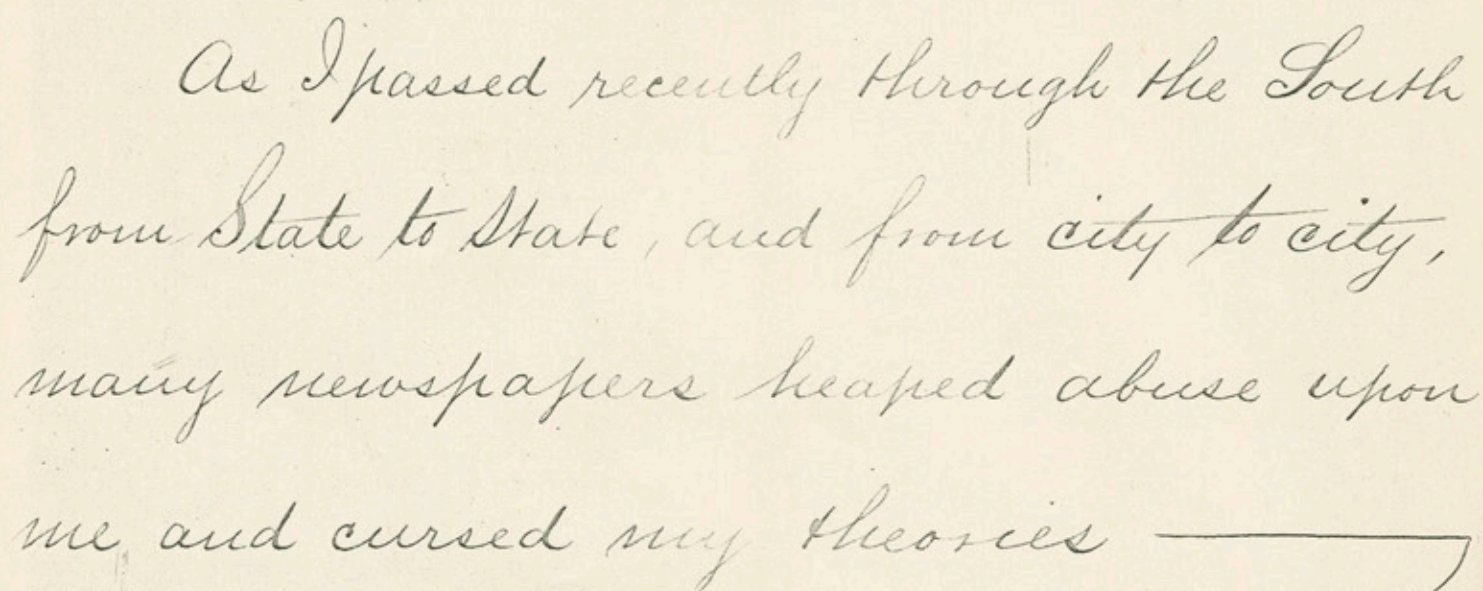 As I passed recently through the South
from State to State, and from city to city,
many newspapers heaped abuse upon
me and cursed my theories —